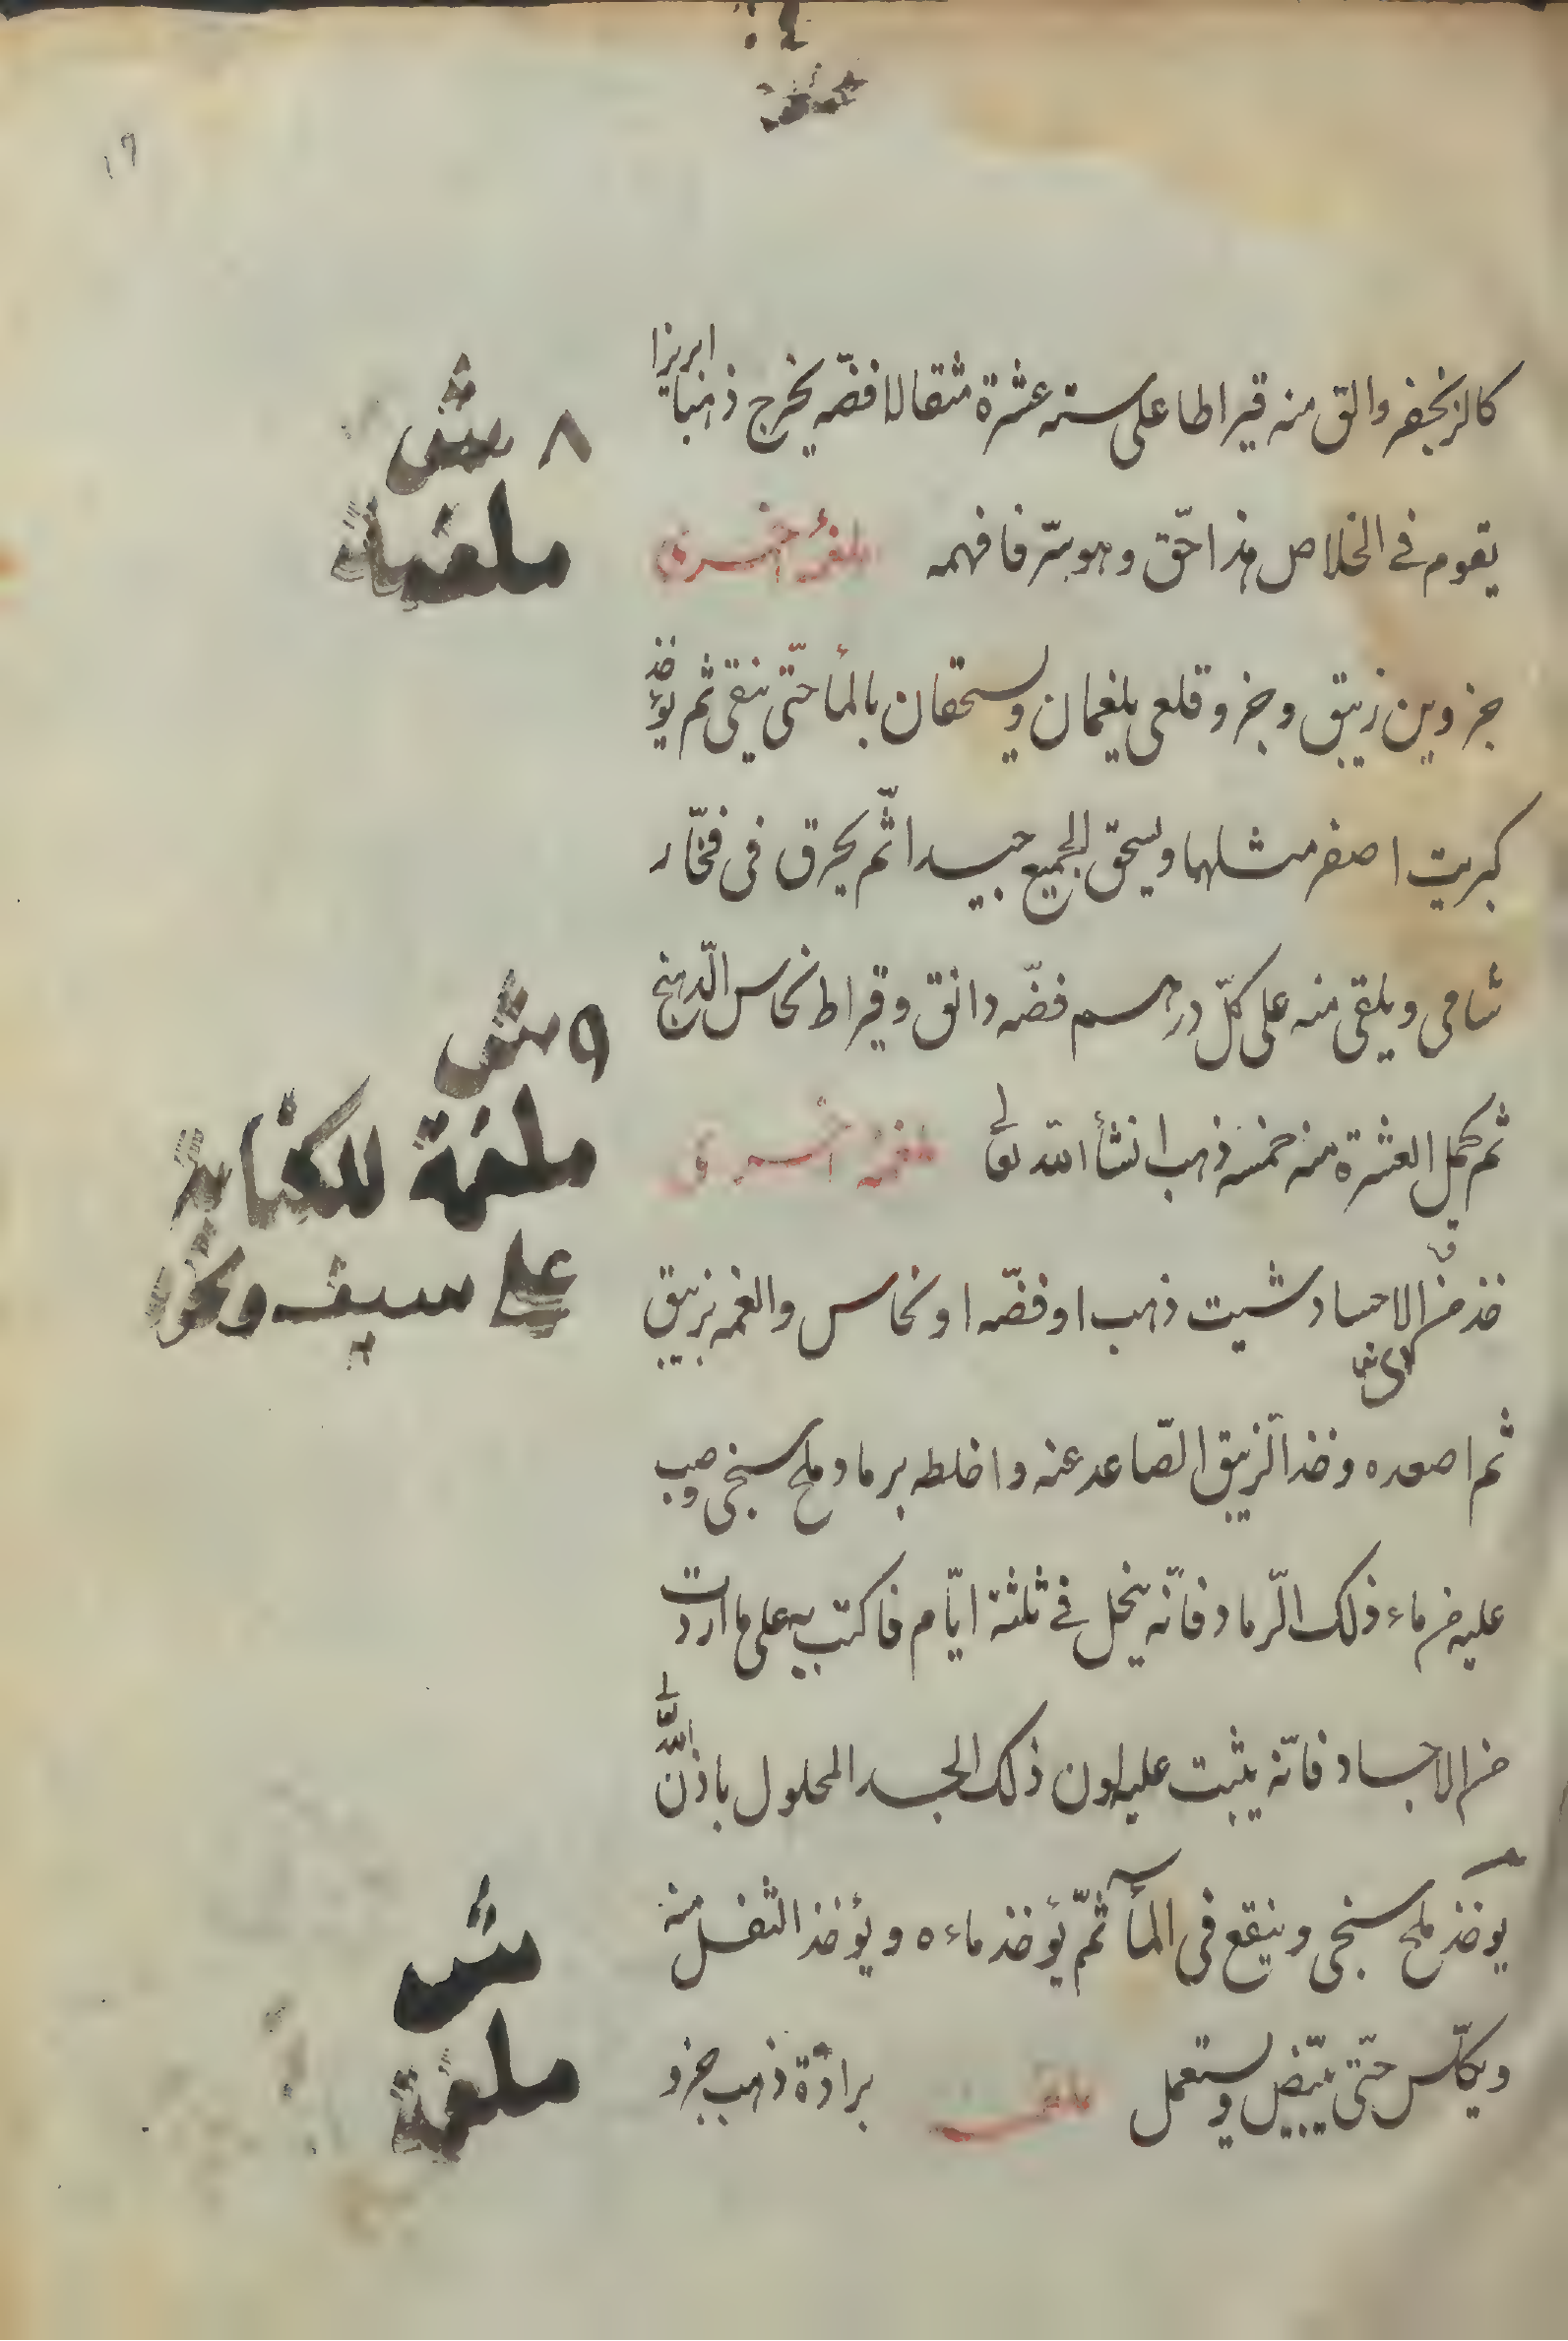 كالزنجفر والق منه قيراطا على ستة عشرة مثقالا فضّه يخرج ذهبا ابريزا
يقوم في الخلاص هذا حّق وهو سرّ فافهمه ملغمة اخرى
جزوين زيبق وجزو قلعى يلغمان ويسحقان بالمأ حتّى ينقى ثم يؤخذ
كبريت اصفر مثلهما ويسحق الجميع جيدا ثّم يحرق فى فخّار
شامى ويلقى منه على كلّ درهم فضّه دانق وقيراط نحاس الّدهنج
ثم كمل العشرة منه خمسه ذهب انشأ الله تعالى ملغمة اخرى
خذ من الاجساد شيت ذهب او فضّه او نحاس والغمه بزيبق
ثم اصعده وخذ الّزيبق الصّاعد عنه واخلطه برماد وملح سنجى وصب
عليه من ماء ذلك الّرماد فانّه ينحل في ثلثة ايّام فاكتب به على ما اردت
من الاجساد فانّه يثبت عليه لون ذلك الجسد المحلول باذن الله تعالى
يوخذ ملح سنجى وينقع فى المأ ثمّ يؤخذ ماءه ويؤخذ الثفل منه
ويكلّس حتّى يبيّض ويستعمل ملغمة برادة ذهب جزو
٨ ش
ملغمة
٩ ش
ملغمة للكتابة
على سيف ونحو
ش
ملغمة